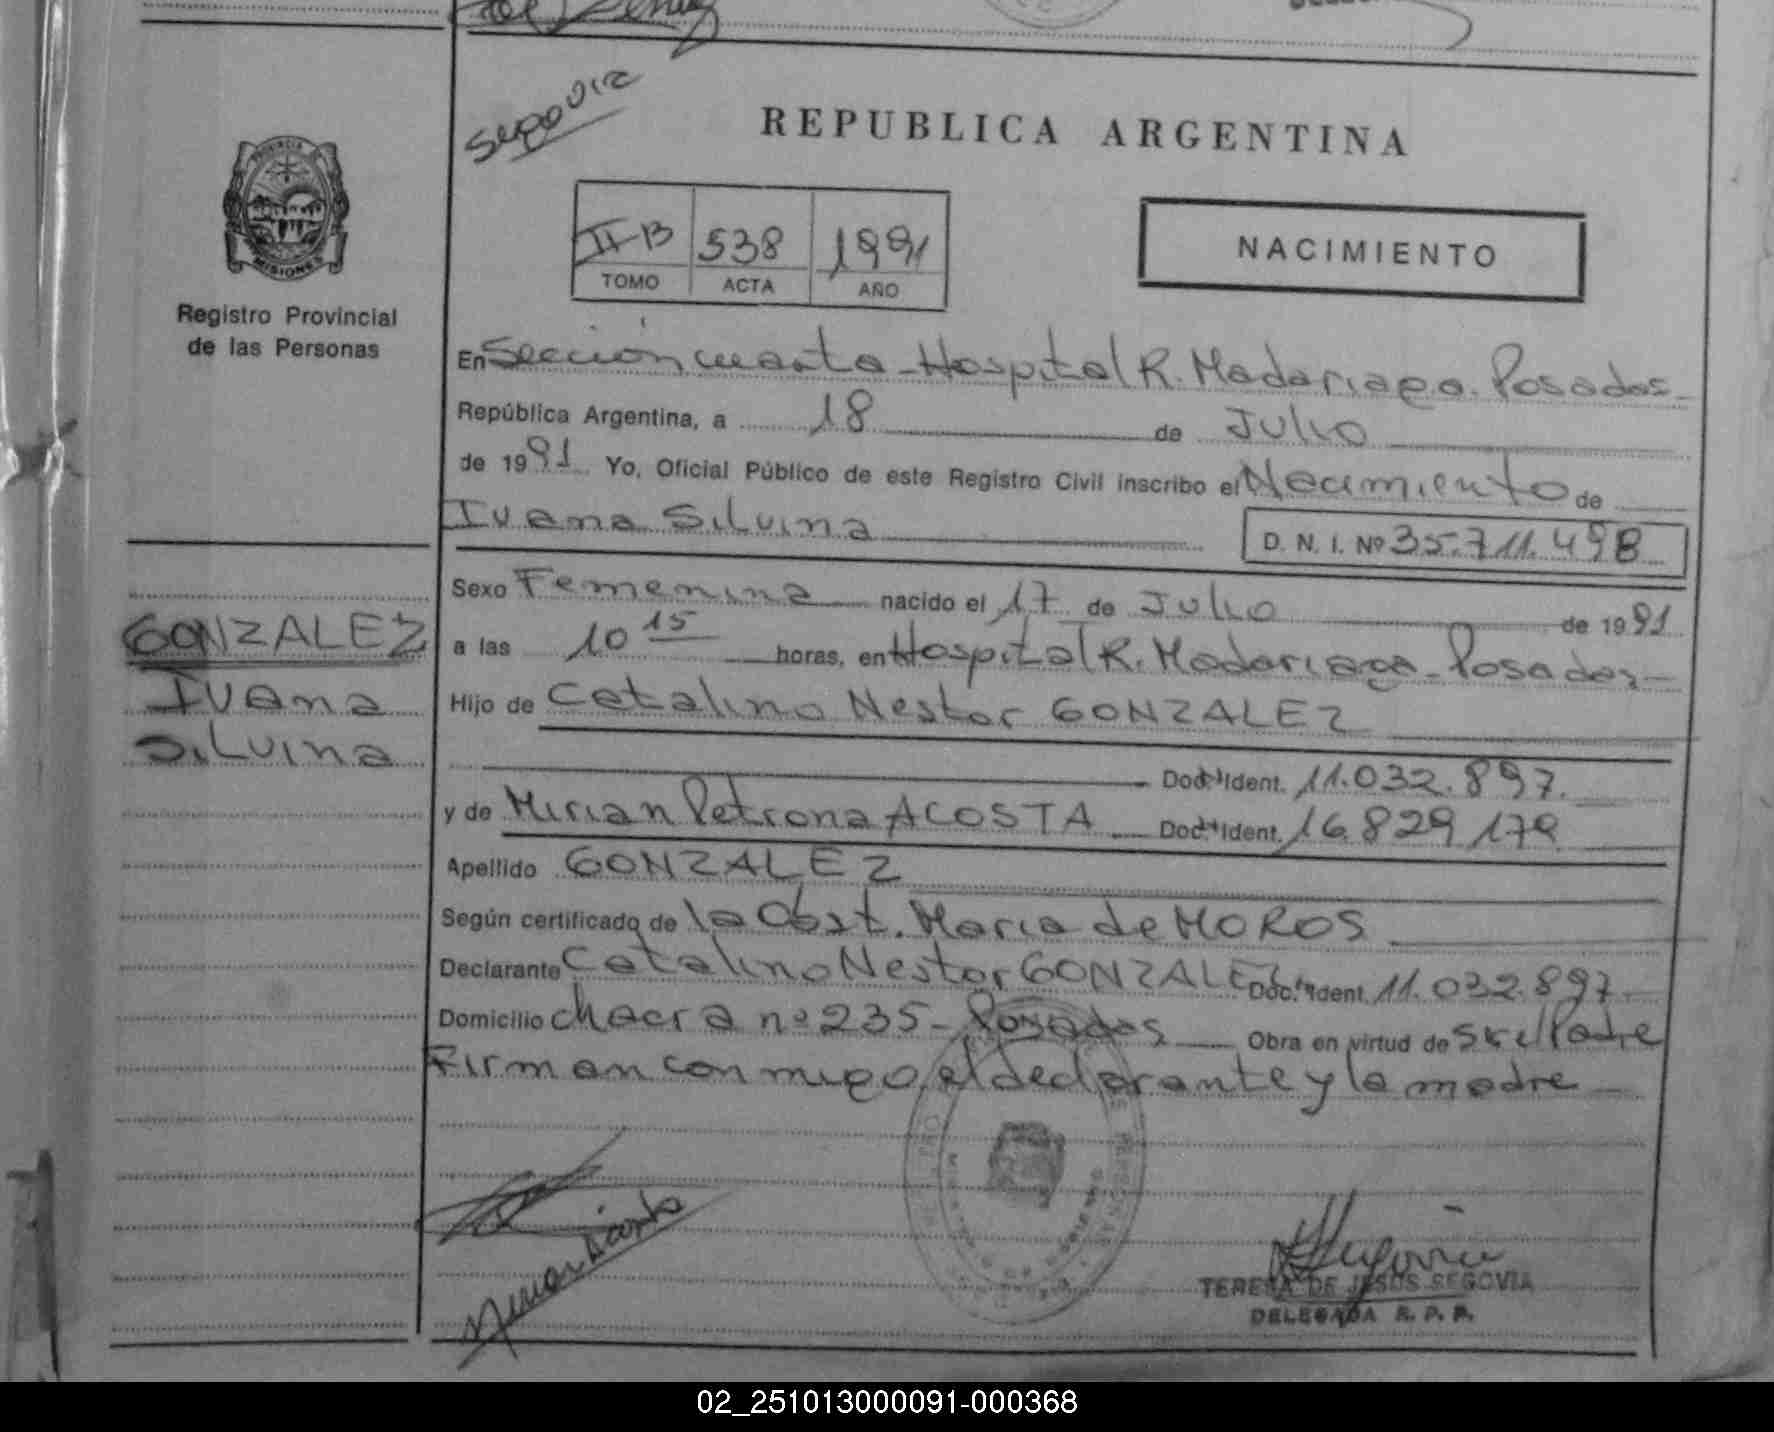 Segovia
REPUBLICA ARGENTINA
PROVINCIA
MISIONES
Registro Provincial
de las Personas
II-B 538 1991
TOMO ACTA AÑO
NACIMIENTO
En Sección cuarta - Hospital R. Madariaga. Posadas -
República Argentina, a 18 de Julio
de 1991 Yo, Oficial Público de este Registro Civil inscribo el Nacimiento de
Ivana Silvina D. N. I. Nº 35.711.498
Sexo Femenina nacido el 17 de Julio de 1991
GONZALEZ
Ivana
Silvina
a las 10 15 horas, en Hospital R. Madariaga - Posadas -
Hijo de Catalino Nestor GONZALEZ
Doc. Ident. 11.032.897.
y de Mirian Petrona ACOSTA Doc. Ident. 16.829.179
Apellido GONZALEZ
Según certificado de la Obst. Maria de MOROS
Declarante Catalino Nestor GONZALEZ Doc. Ident. 11.032.897
Domicilio Chacra nº 235 - Posadas Obra en virtud de ser el Padre
Firman conmigo, el declarante y la madre
TERESA DE JESUS SEGOVIA
DELEGADA R. P. P.
02_251013000091-000368